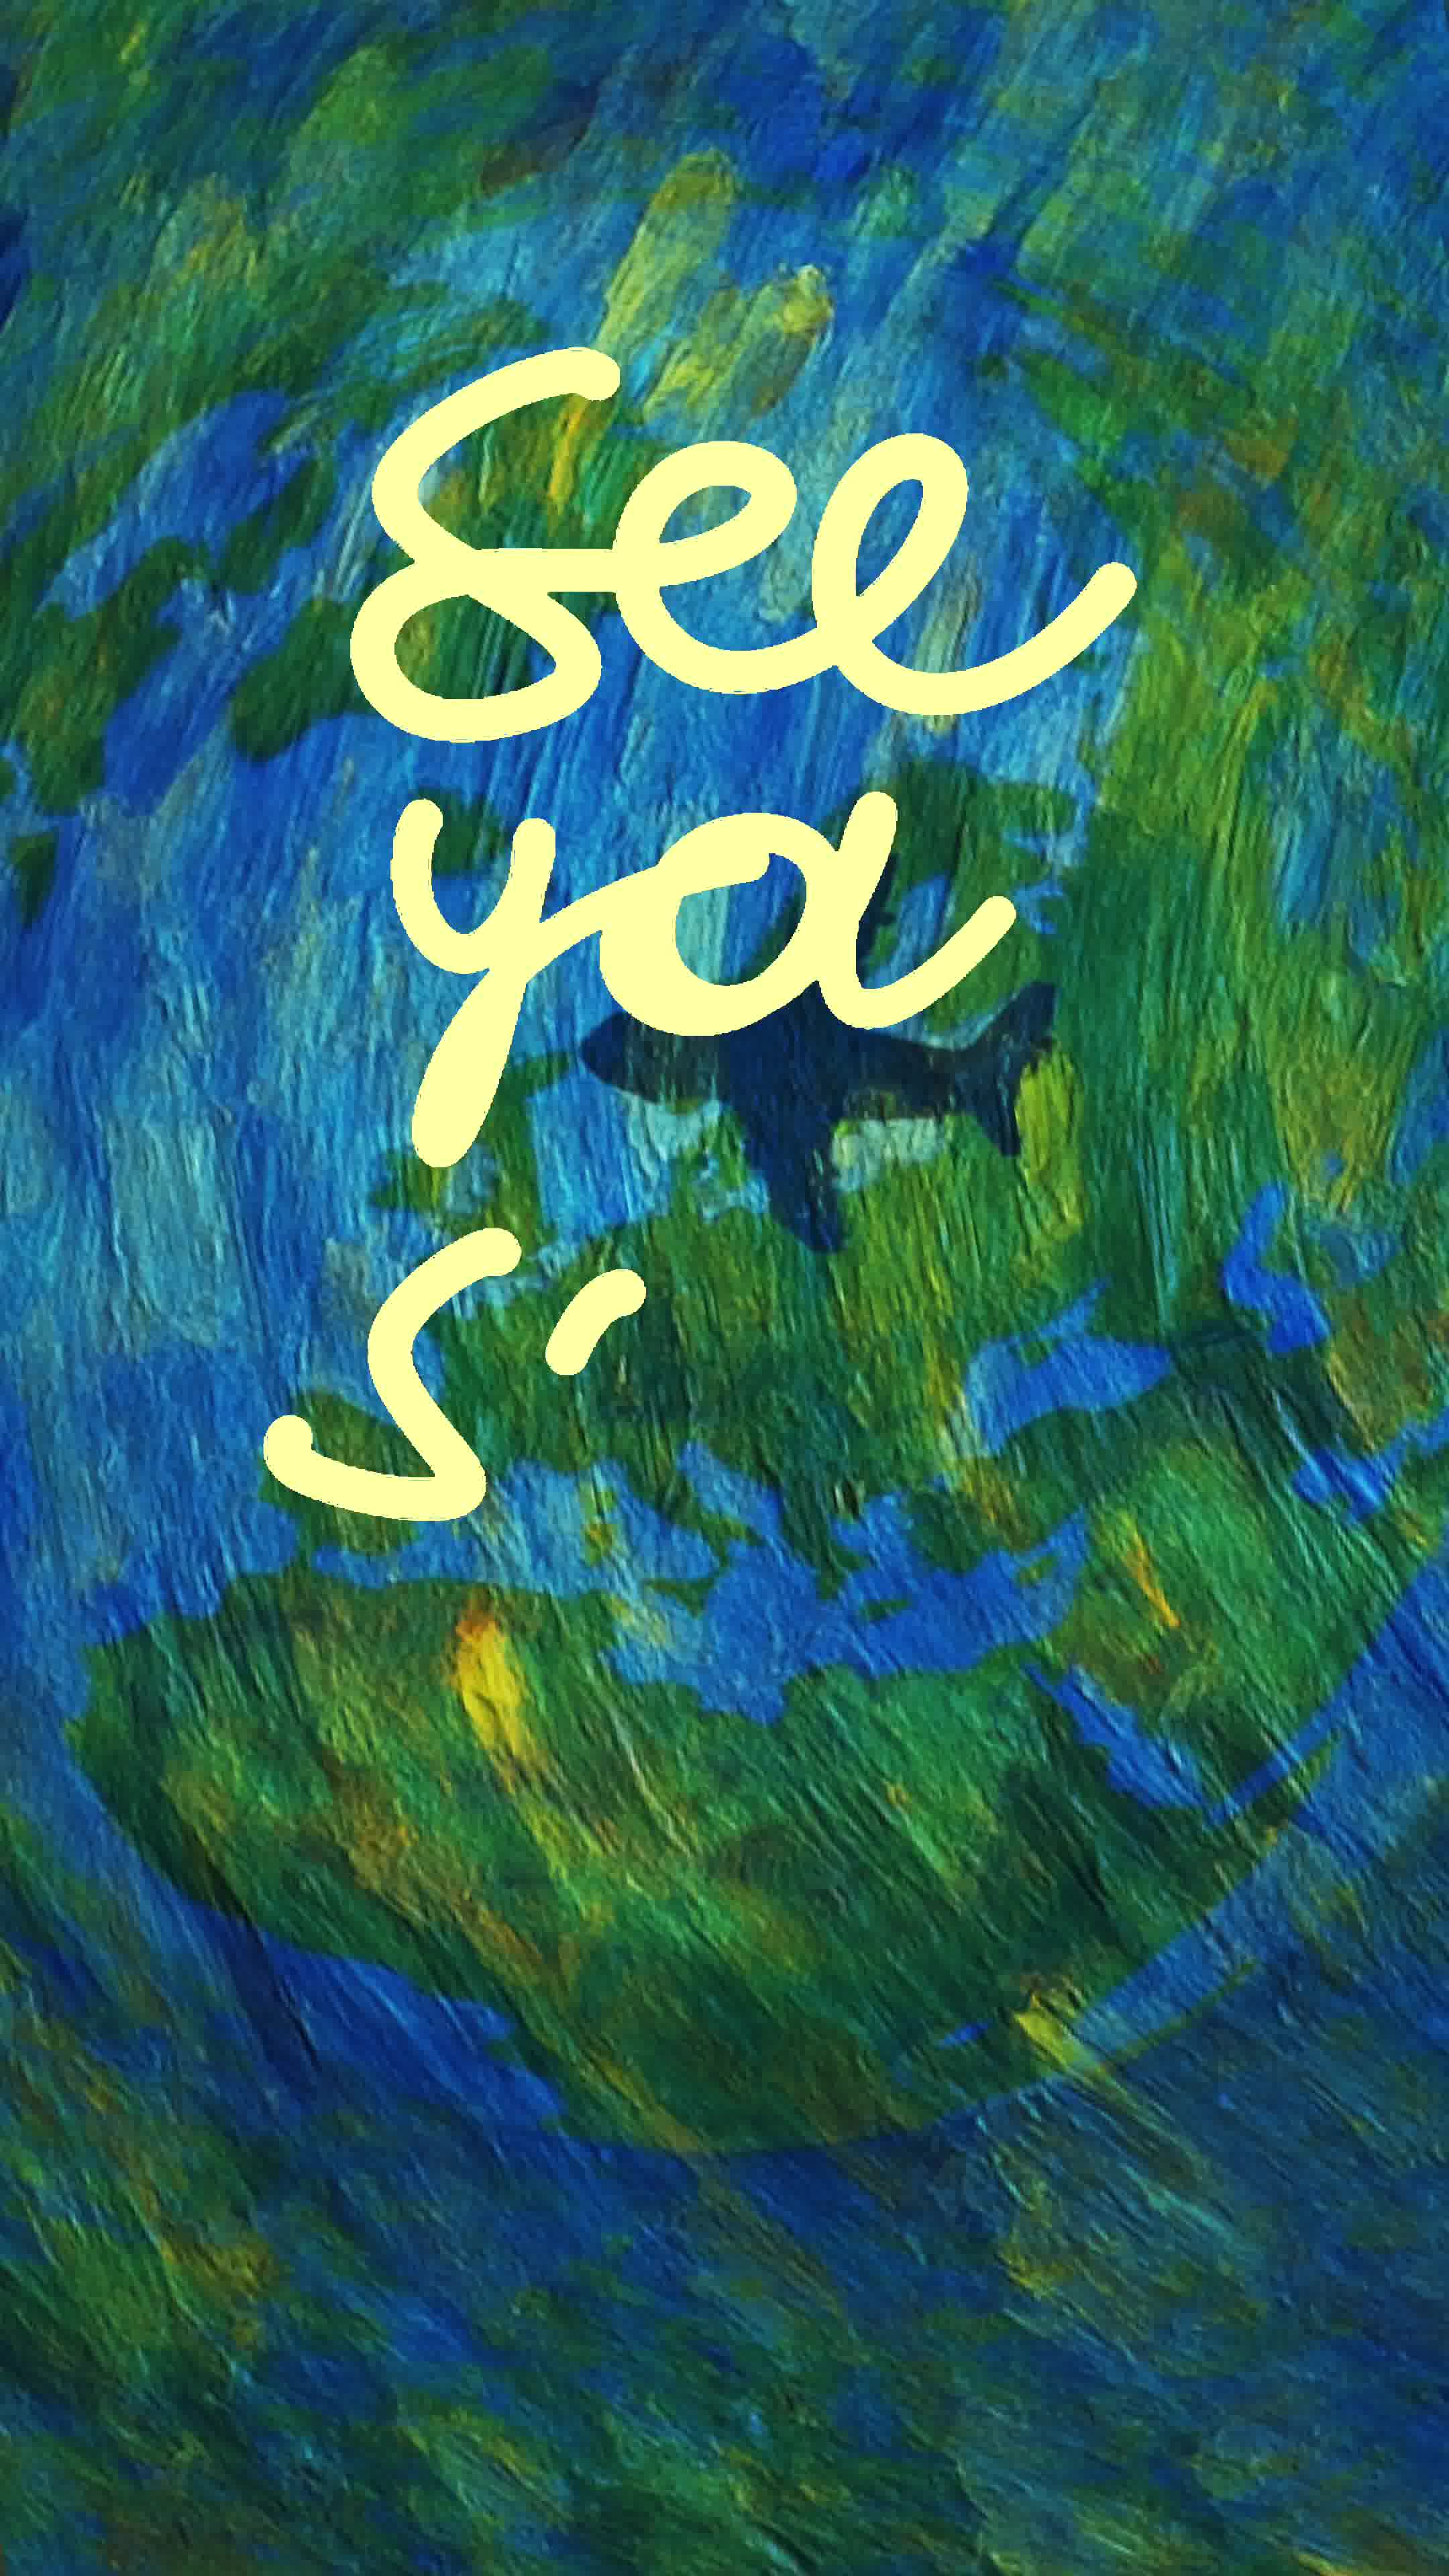 See
ya
S'